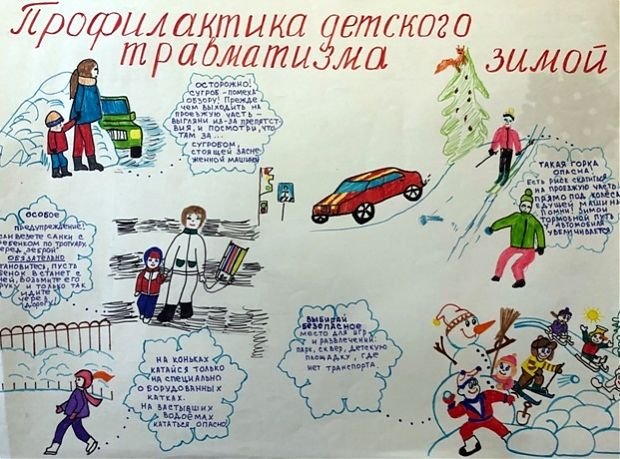 Профилактика детского
травматизма зимой
ОСТОРОЖНО!
СУГРОБ - ПОМЕХА
ОБЗОРУ! ПРЕЖДЕ,
ЧЕМ ВЫХОДИТЬ НА
ПРОЕЗЖУЮ ЧАСТЬ -
ВЫГЛЯНИ ИЗ-ЗА ПРЕПЯТСТ-
ВИЯ, И ПОСМОТРИ, ЧТО
ТАМ ЗА...
СУГРОБОМ,
СТОЯЩЕЙ ЗАСНЕ-
ЖЕННОЙ МАШИНОЙ
ТАКАЯ ГОРКА
ОПАСНА!
ЕСТЬ РИСК СКАТИТЬСЯ
НА ПРОЕЗЖУЮ ЧАСТЬ
ПРЯМО ПОД КОЛЁСА
ЕДУЩЕЙ МАШИНЫ
ПОМНИ! ЗИМОЙ
ТОРМОЗНОЙ ПУТЬ
АВТОМОБИЛЯ
УВЕЛИЧИВАЕТСЯ
ОСОБОЕ
ПРЕДУПРЕЖДЕНИЕ!
ВЕЗЕТЕ САНКИ С
РЕБЕНКОМ ПО ТРОТУАРУ,
ПЕРЕД „ЗЕБРОЙ"
ОБЯЗАТЕЛЬНО
СТАНОВИТЕСЬ, ПУСТЬ
БЕНОК ВСТАНЕТ С
НЕЙ, ВОЗЬМИТЕ ЕГО
РУКУ И ТОЛЬКО ТАК
ИДИТЕ
ЧЕРЕЗ
ДОРОГУ
ВЫБИРАЙ
БЕЗОПАСНОЕ
МЕСТО ДЛЯ ИГР
И РАЗВЛЕЧЕНИЙ:
ПАРК, СКВЕР, ДЕТСКУЮ
ПЛОЩАДКУ, ГДЕ
НЕТ ТРАНСПОРТА.
НА КОНЬКАХ
КАТАЙСЯ ТОЛЬКО
НА СПЕЦИАЛЬНО
ОБОРУДОВАННЫХ
КАТКАХ.
НА ЗАСТЫВШИХ
ВОДОЁМАХ
КАТАТЬСЯ ОПАСНО!